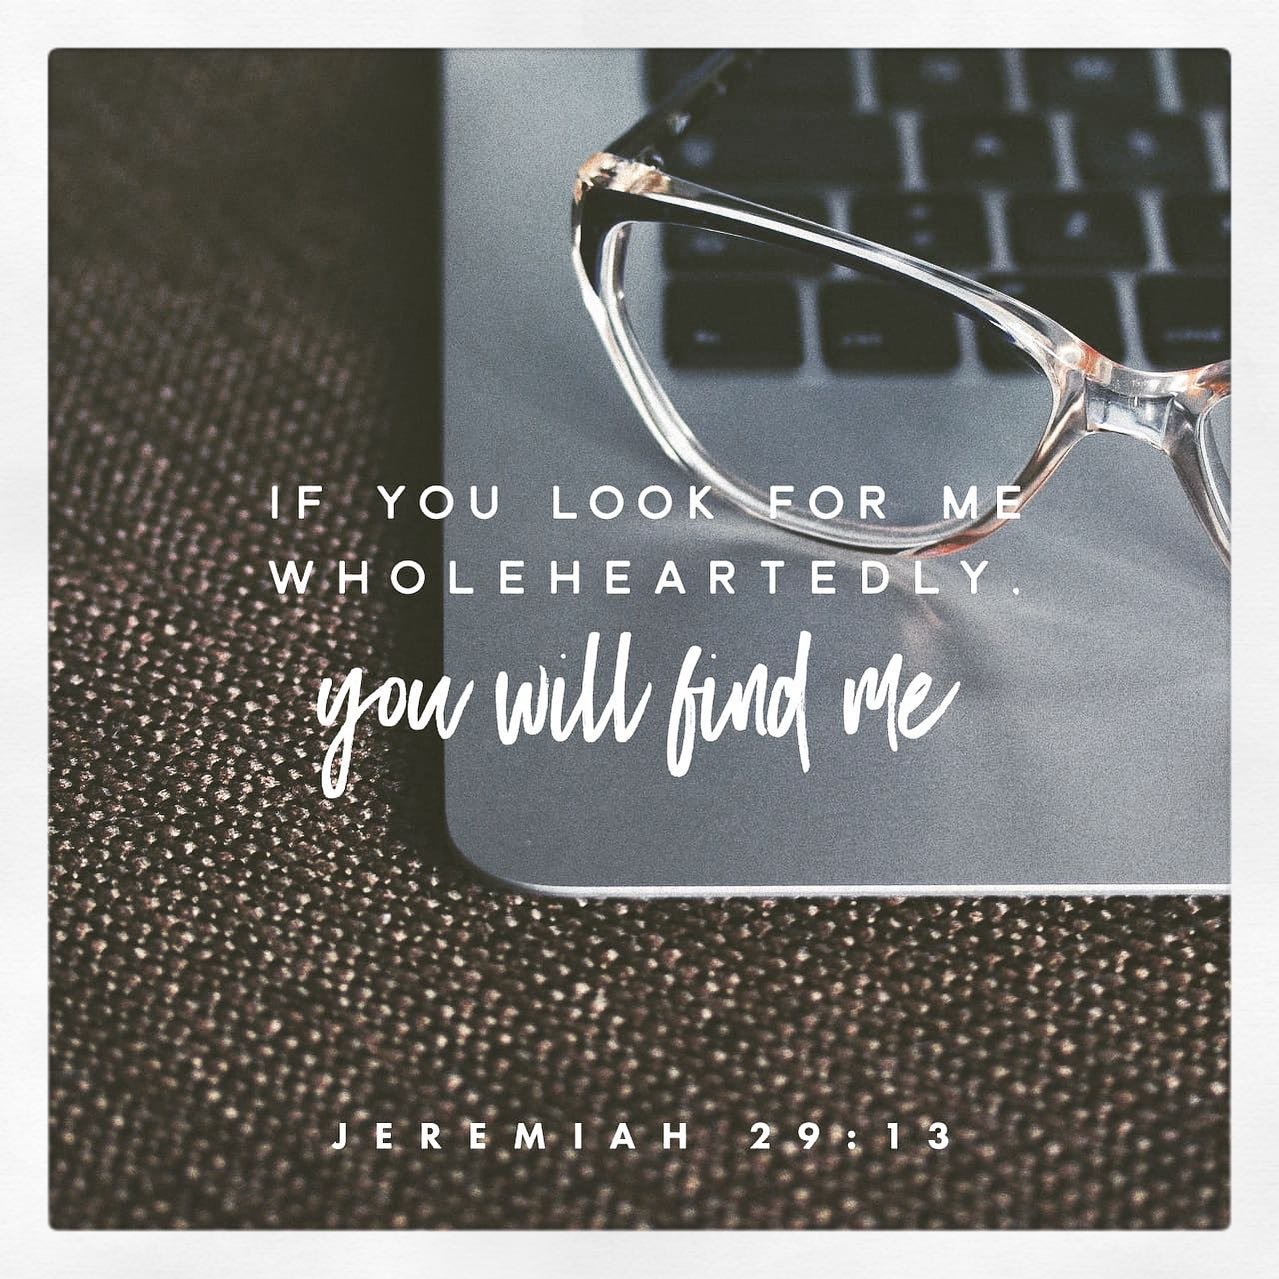 IF YOU LOOK FOR ME
WHOLEHEARTEDLY.
you will find me
JEREMIAH 29:13